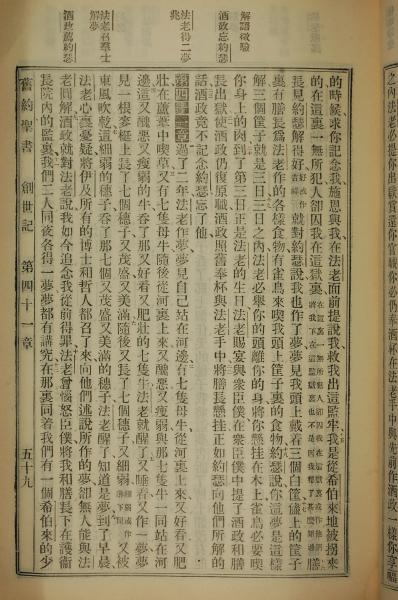 之內法老必提你出獄賞還你官職你必仍奉酒杯在法老手中與先前作酒政一樣你享福
的時候求你記念我施恩與我在法老面前提說我救我出這監牢我是從希伯來地被拐來
的在這裏一無所犯人卻囚我在這獄裏
長見約瑟解得好就對約瑟說我也作了夢夢見我頭上戴着三個白筐儘上的筐子
裏有膳長爲法老作的各樣食物有雀鳥來喫我頭上筐子裏的食物約瑟說你這夢是這樣
解三個筐子就是三日三日之內法老必舉你的頭離你的身將你懸挂在木上雀鳥必要喫
你身上的肉到了第三日正是法老的生日法老賜宴與衆臣僕在衆臣僕中提了酒政和膳
長出獄使酒政仍復原職酒政照舊奉杯與法老手中將膳長懸挂正如約瑟向他們所解的
話酒政竟不記念約瑟忘了他
第四十一章過了二年法老作夢夢見自己站在河邊有七隻母牛從河裏上來又好看又肥
壯在蘆葦中喫草又有七隻母牛隨後從河裏上來又醜惡又瘦弱與那七隻牛一同站在河
邊這又醜惡又瘦弱的牛吞了那又好看又肥壯的七隻牛法老就醒了又睡着又作一夢夢
見一根麥梃上長了七個穗子又茂盛又美滿隨後又長了七個穗子又細弱又被
東風吹乾這細弱的穗子吞了那七個又茂盛又美滿的穗子法老醒了知道是夢到了早晨
法老心裏憂疑將伊及所有的博士和哲人都召了來向他們述說所作的夢卻無人能與法
老圓解酒政就對法老說我如今追念我從前得罪法老曾惱怒臣僕將我和膳長下在護衞
長院內的監裏我們二人同夜各得一夢夢都有講究在那裏同着我們有一個希伯來的少
舊約聖書 創世記 第四十一章 五十九
解語徵驗
酒政忘約瑟
法老得二夢
兆
法老召羣士
解夢
酒政薦約瑟